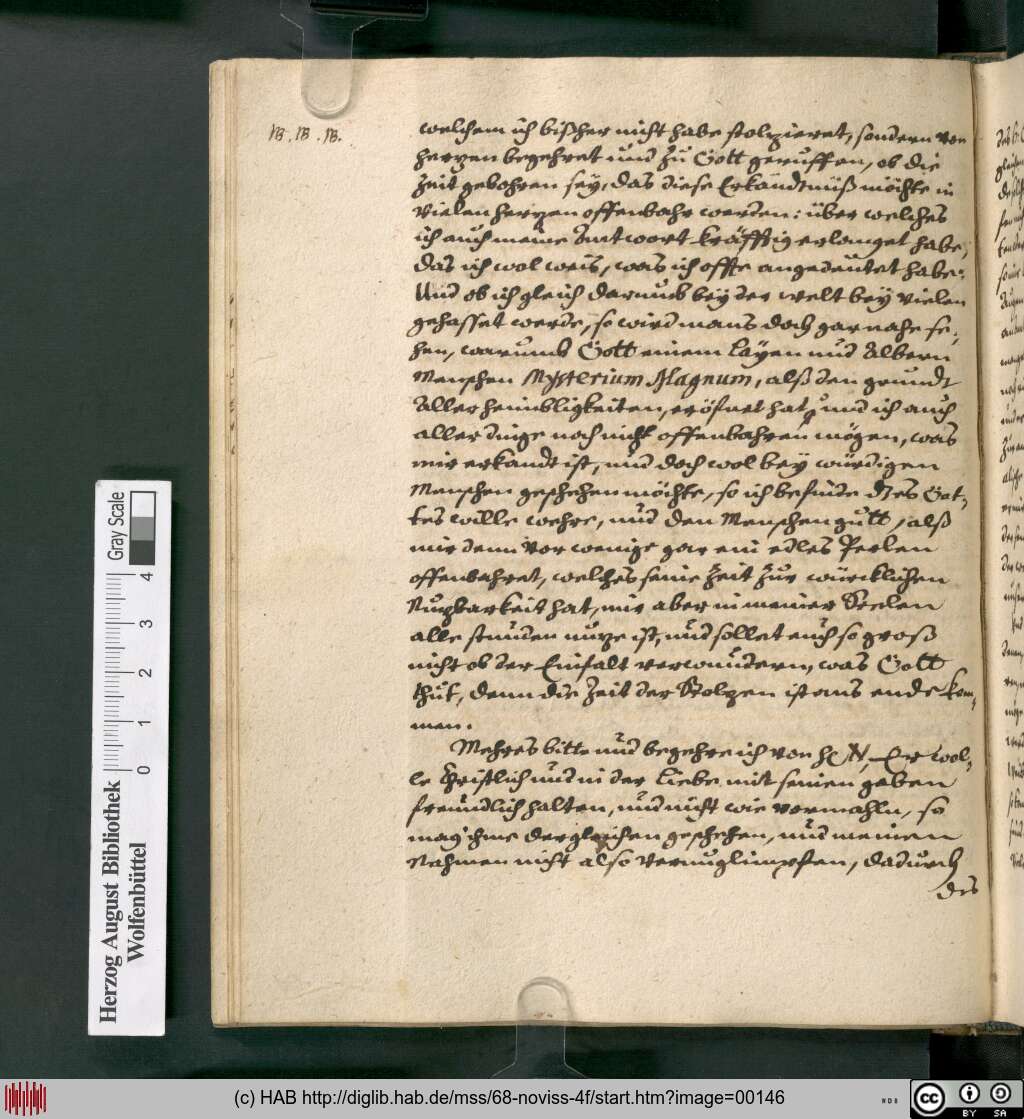 NB. NB. NB.
welchem ich bißher nicht habe stolzieret, sondern von
herzen begehret und zu Gott geruffen, ob die
Zeit gebohren sey, das diese Erkändtnüß möchte in
vielen herzen offenbahr werden: über welches
ich auch meine Antwort kräfftig erlanget habe,
das ich wol weis, was ich offte angedeutet habe.
Und ob ich gleich darumb bey der welt bey vielen
gehasset werde, so wird mans doch gar nahe se-
hen, warumb Gott einem Layen und Albern
Menschen Mysterium Magnum, alß den grundt
Aller heimbligkeiten, eröfnet hat, und ich auch
aller dinge noch nicht offenbahren mögen, was
mir erkandt ist, und doch wol bey würdigen
Menschen geschehen möchte, so ich befünde d es Got-
tes wille wehre, und den Menschen gutt, alß
mir denn vor wenige gar ein edles Perlen
offenbahret, welches seine Zeit zur würcklichen
Nuzbarkeit hat, mir aber in meiner Seelen
alle stunden nuze ist, und sollet euch so groß
nicht ob der Einfalt verwundern, was Gott
thut, denn die Zeit der Stolzen ist ans ende kom-
men.
Mehres bitte und begehre ich von H N, Er wol-
le Christlich und in der Liebe mit seinen gaben
freundlich halten, und nicht wie vormahln, so
mag ihme dergleichen geschehen, und meinen
Nahmen nicht also verunglimpfen, dadurch
des
Gray Scale
4
3
2
1
0
Herzog August Bibliothek
Wolfenbüttel
(c) HAB http://diglib.hab.de/mss/68-noviss-4f/start.htm?image=00146
WDB
cc
BY SA